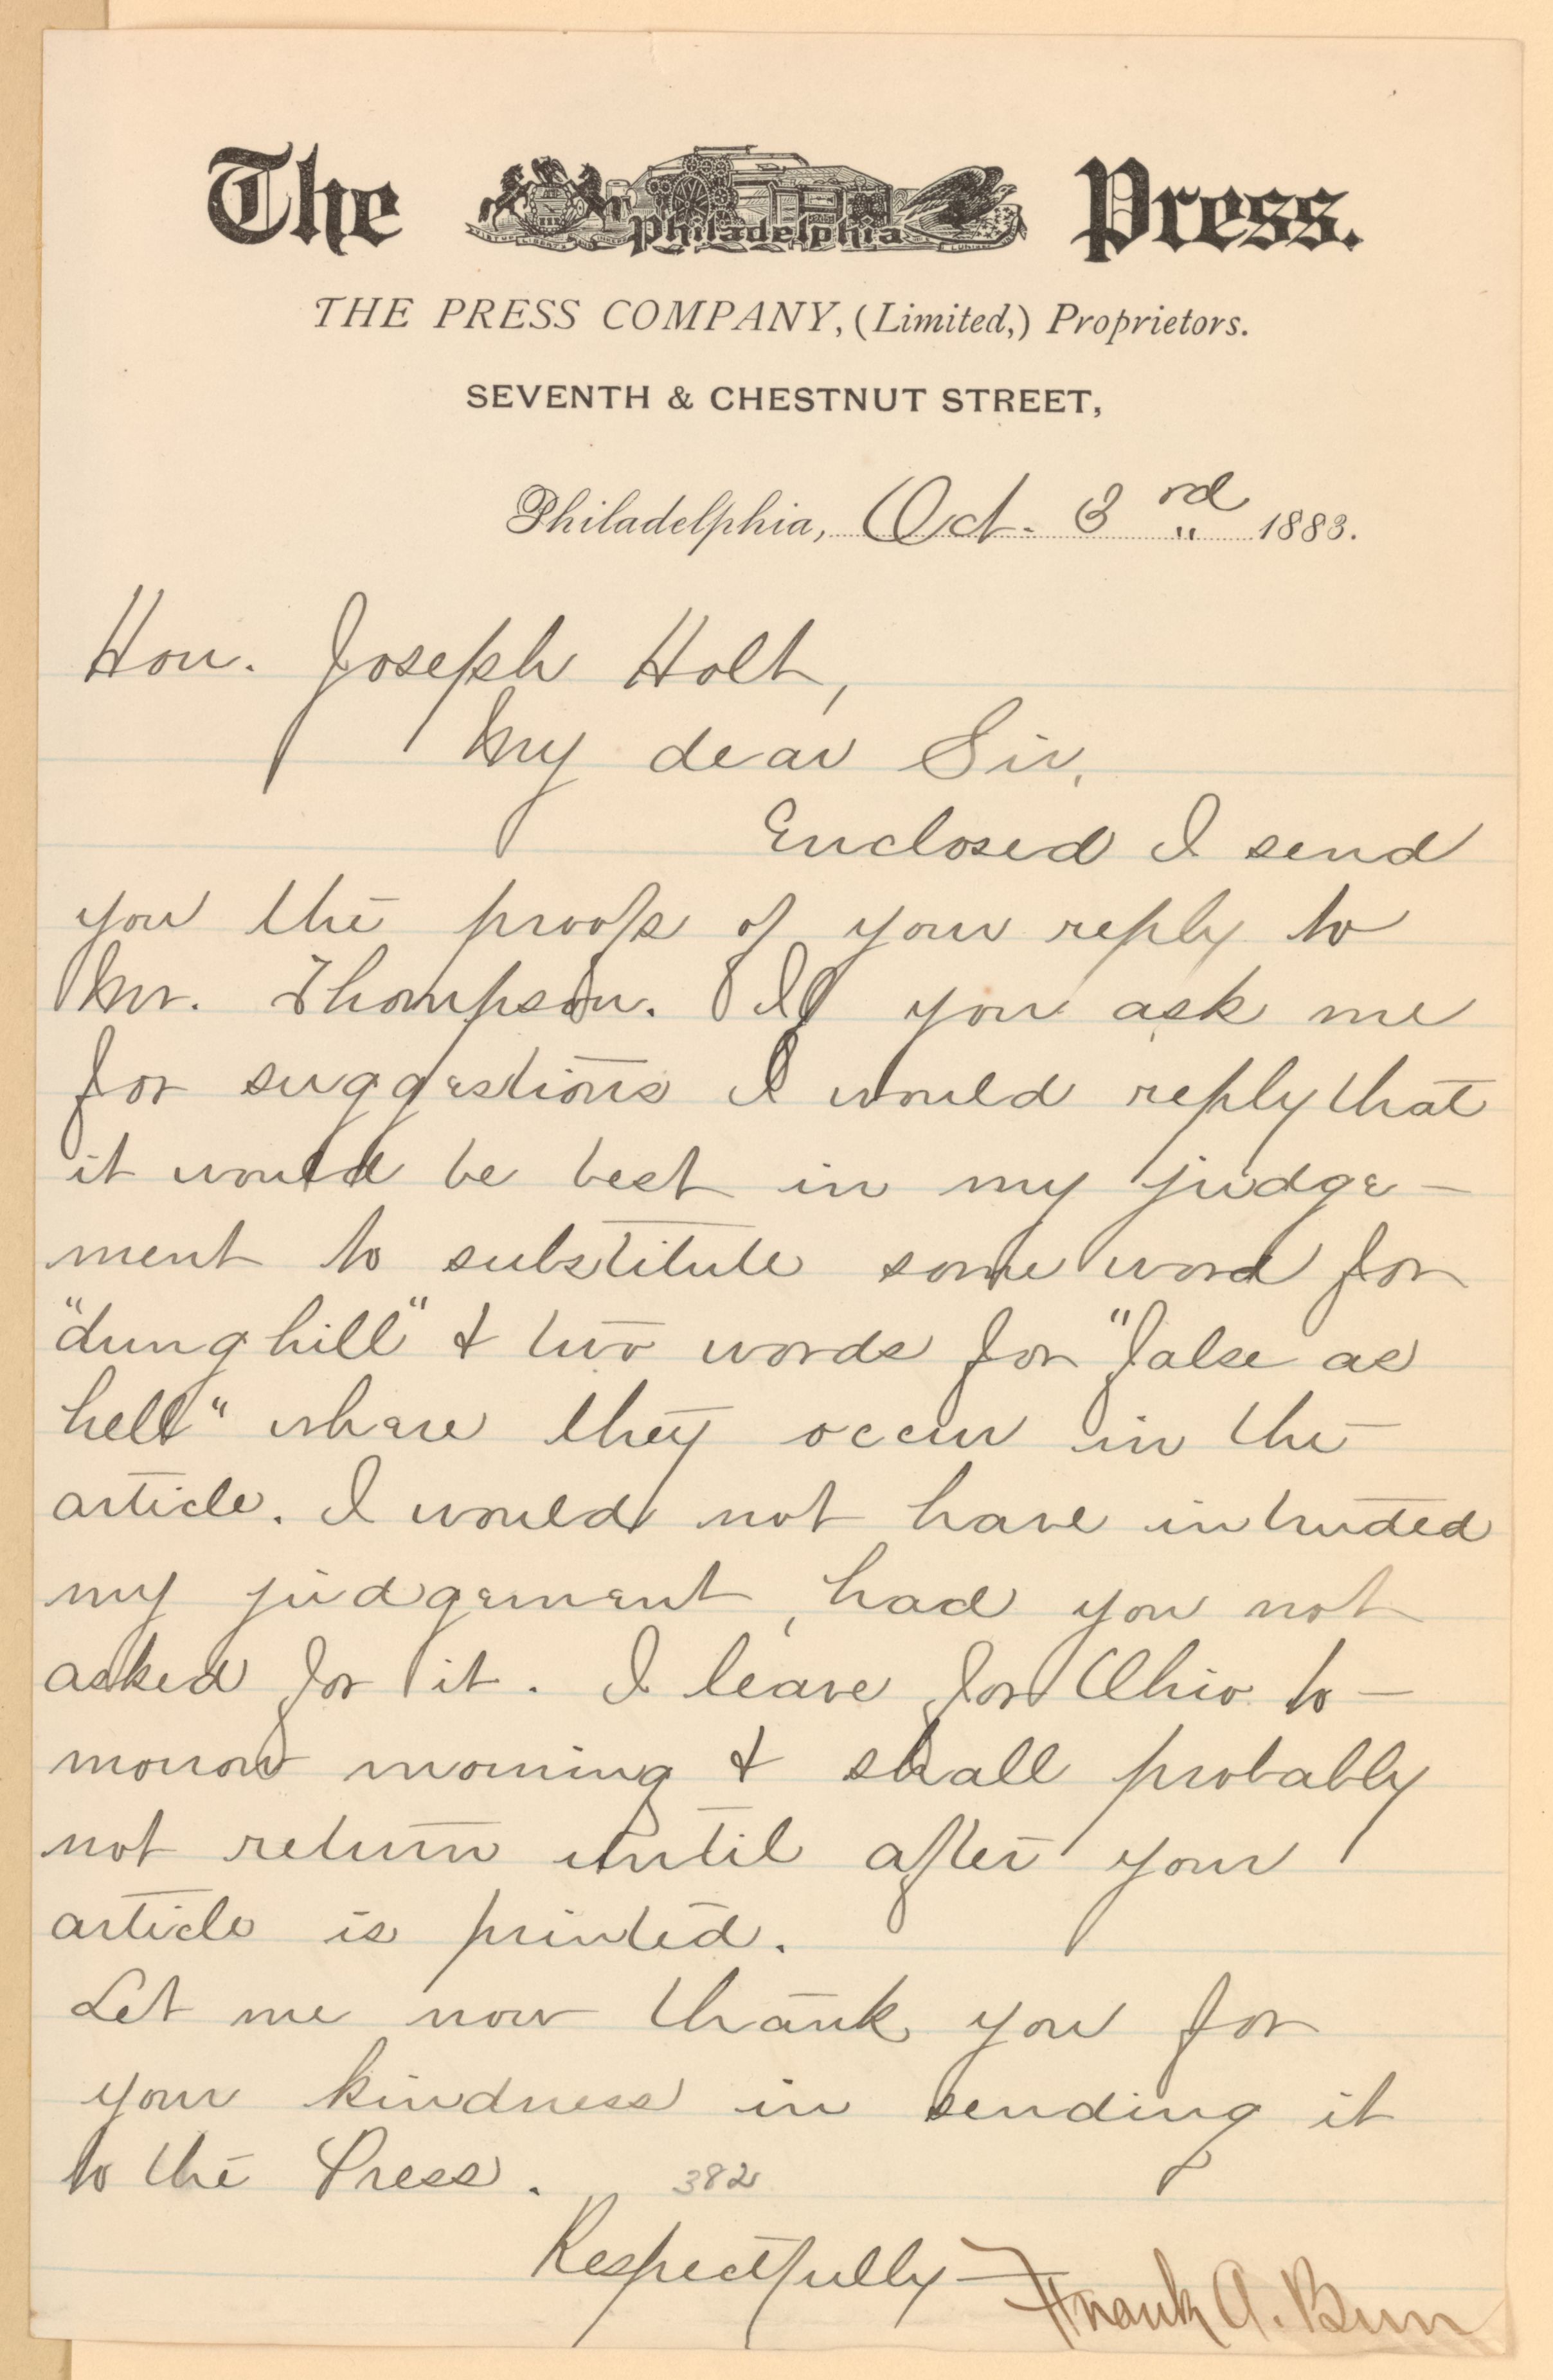 The Philadelphia Press.
THE PRESS COMPANY, (Limited,) Proprietors.
SEVENTH & CHESTNUT STREET,
Philadelphia, Oct. 3rd 1883.
Hon. Joseph Holt,
My dear Sir,
Enclosed I send
you the proofs of your reply to
Mr. Thompson. If you ask me
for suggestions I would reply that
it would be best in my judge-
ment to substitute some word for
"dunghill" & two words for "false as
hell" where they occur in the
article. I would not have intruded
my judgement, had you not
asked for it. I leave for Ohio to-
morrow morning & shall probably
not return until after your
article is printed.
Let me now thank you for
your kindness in sending it
to the Press.
382
Respectfully
Frank A. Burr